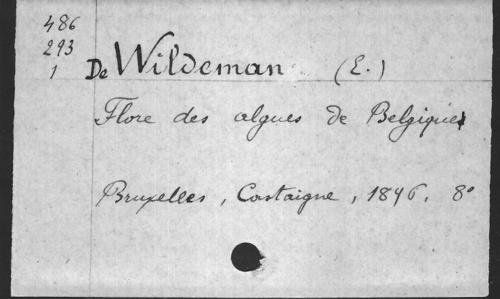 486
293
1
De Wildeman (E.)
Flore des algues de Belgique
Bruxelles, Castaigne, 1896, 8°